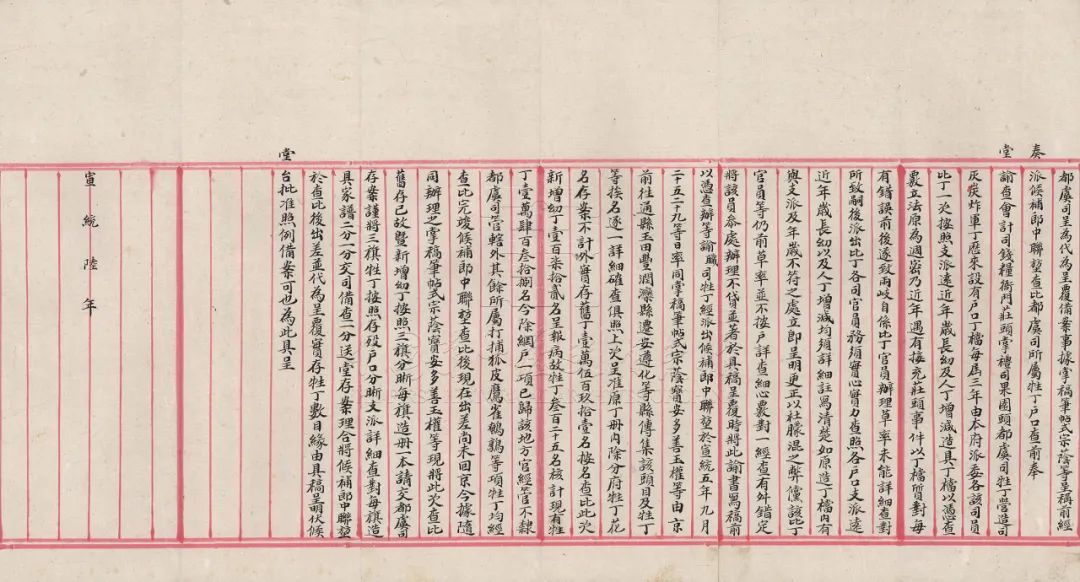 都虞司呈為代為呈覆備案事據掌稿筆帖式宗蔭等呈稱前經
奏派候補郎中聯堃查比都虞司所屬牲丁戶口查前奉
堂諭查會計司錢糧衙門莊頭掌禮司果園頭都虞司牲丁營造司
灰炭炸軍丁歷來設有戶口丁檔每屆三年由本府派委各該司員
比丁一次按照支派遠近年歲長幼及人丁增減造具丁檔以憑查
覈立法原為週密乃近年遇有接充莊頭事件以丁檔質對每
有錯誤前後遂致兩岐自係比丁官員辦理草率未能詳細查對
所致嗣後派出比丁各司官員務須實心實力查照各戶口支派遠
近年歲長幼以及人丁增減均須詳細註寫清楚如原造丁檔內有
與支派及年歲不符之處立即呈明更正以杜朦混之弊儻該比丁
官員等仍前草率並不按戶詳查細心覈對一經查有舛錯定
將該員叅處辦理不貸並著於具稿呈覆時將此諭書寫稿前
以憑查辦等諭職司牲丁經派出候補郎中聯堃於宣統五年九月
二十五二十九等日率同掌稿筆帖式宗蔭寶安多善玉權等由京
前往通縣玉田豐潤灤縣遷安遵化等縣傳集該頭目及牲丁
等挨名逐一詳細確查俱照上次呈准原丁冊內除分府牲丁花
名存案不計外實存舊丁壹萬伍百玖拾壹名按名查比此次
新增幼丁壹百柒拾貳名呈報病故牲丁叁百二十五名核計現有牲
丁壹萬肆百叁拾捌名今除網戶一項已歸該地方官經管不隸
都虞司管轄外其餘所屬打捕狐皮鷹雀鵪鶉等項牲丁均經
查比完竣候補郎中聯堃查比後現在出差尚未回京今據隨
同辦理之掌稿筆帖式宗蔭寶安多善玉權等現將此次查比
舊存已故暨新增幼丁按照三旗分晰每旗造冊一本請交都虞司
存案謹將三旗牲丁按照存歿戶口分晰支派詳細查對每旗造
具家譜二分一分交司備查一分送堂存案理合將候補郎中聯堃
於查比後出差並代為呈覆實存牲丁數目緣由具稿呈明伏候
堂台批准照例備案可也為此具呈
宣統陸年